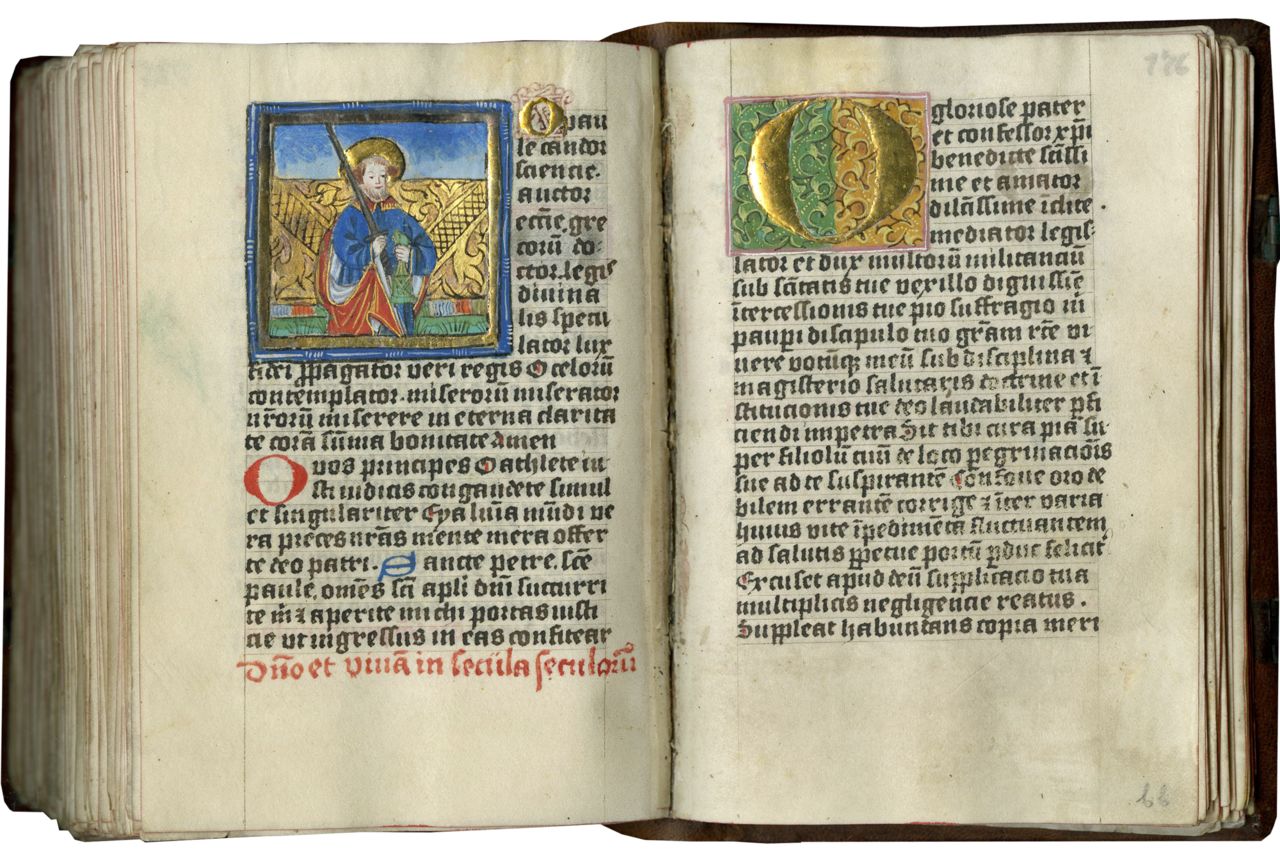 O pau
le candor
sciencie.
auctor
ecc̄ie. gre
corū do-
ctor. legis
diuina
lis specu
lator lux
fidei ꝓpagator veri regis O celorū
contemplator. miserorū miserator
nr̄orū miserere in eterna clarita
te corā sūma bonitate Amen
O vos principes O athlete iu
sti iudicis congaudete simul
et singulariter Eya luīa mūdi ve
ra preces nr̄as mente mera offer
te deo patri. Sancte petre. sc̄e
paule. om̄es sc̄i apl̄i dn̄i succurri
te m̄ ⁊ aperite michi portas iusti
cie vt ingressus in eas confitear
Dn̄o et viuā in secūla seculorū
176
O gloriose pater
et confessor xp̄i
benedicte sc̄issi
me et amator
dilc̄issime īclite.
mediator legis-
lator et dux multorū militanciū
sub sc̄itatis tue vexillo dignissīe
ītercessionis tue pio suffragio m̄
paup̲i discipulo tuo grām rc̄te vi
uere votūqꝫ meū sub disciplina ⁊
magisterio salutaris doctrine et ī
stitucionis tue deo laudabiliter p̲fi
ciendi impetra Sit tibi cura pia su
per filiolū tuū de loco p̲egrinacioīs
sue ad te suspirantē Confoue oro de
bilem errantē corrige ⁊ īter varia
huius vite īpedimēta fluctuantem
ad salutis p̲petue portū p̲duc felicit̉
Excuset apud deū supplicacio tua
multiplicis negligencie reatus.
Suppleat habundans copia meri
68